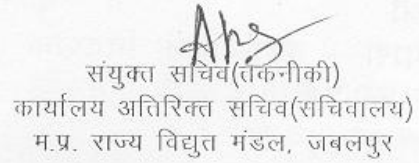 संयुक्त सचिव(तकनीकी)
कार्यालय अतिरिक्त सचिव(सचिवालय)
म.प्र. राज्य विद्युत मंडल, जबलपुर